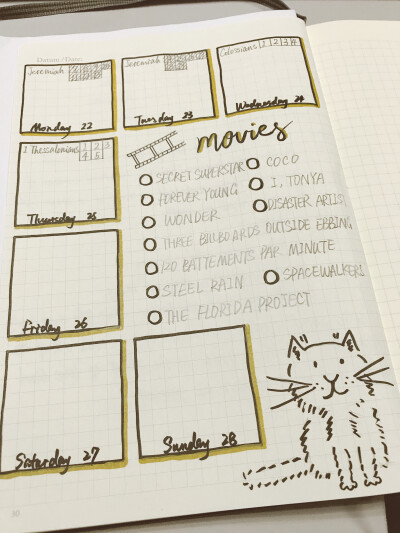 Jeremiah
Monday 22
Jeremiah
Tuesday 23
Colossians 1 2 3 4
Wednesday 24
1 Thessalonians 1 2 3
4 5
Thursday 25
Friday 26
Saturday 27
Sunday 28
movies
SECRET SUPERSTAR
COCO
FOREVER YOUNG
I, TONYA
WONDER
DISASTER ARTIST
THREE BILLBOARDS OUTSIDE EBBING
120 BATTEMENTS PAR MINUTE
STEEL RAIN
SPACEWALKERS
THE FLORIDA PROJECT